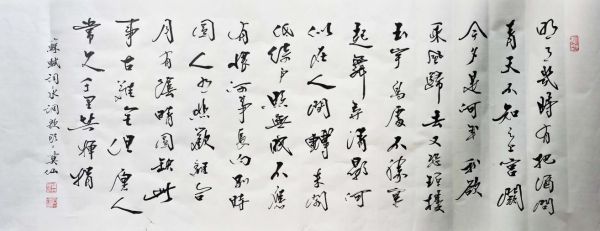 明月幾時有把酒問
青天不知天上宮闕
今夕是何年我欲
乘風歸去又恐瓊樓
玉宇高處不勝寒
起舞弄清影何
似在人間轉朱閣
低綺户照無眠不應
有恨何事長向別時
圓人有悲歡離合
月有陰晴圓缺此
事古難全但願人
常久千里共嬋娟
蘇軾詞水調歌頭